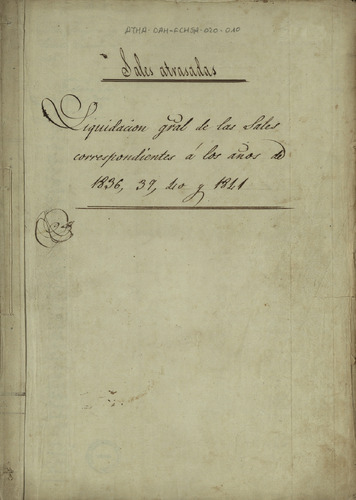 ATHA-DAH-FCHSA-020-010
Sales atrasadas
Liquidacion gral de las Sales
correspondientes á los años de
1836, 37, 40 y 1841